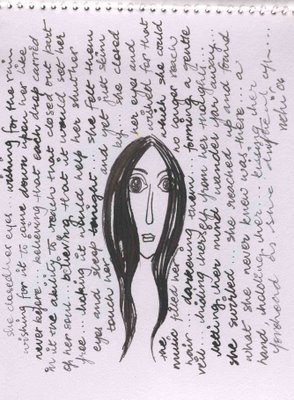 she closed her eyes... wishing for the rain
wishing for it to come down upon her like
never before... believing that each drop carried
in it the ability to reach that closed out part
of her soul... believing that it would set her
free... it should help her shut her
eyes and sleep tonight... she felt them
touch her and yet just slink
by... she closed
her eyes and
wished for that
which she could
no longer reach
the
music filled her
hair... darkening forming a gentle
veil... hiding herself from her thoughts...
letting her mind wander far away...
she swirled she reached up and found
what she never knew was there a
hand holding her... kissing her
forehead as she drifted off...